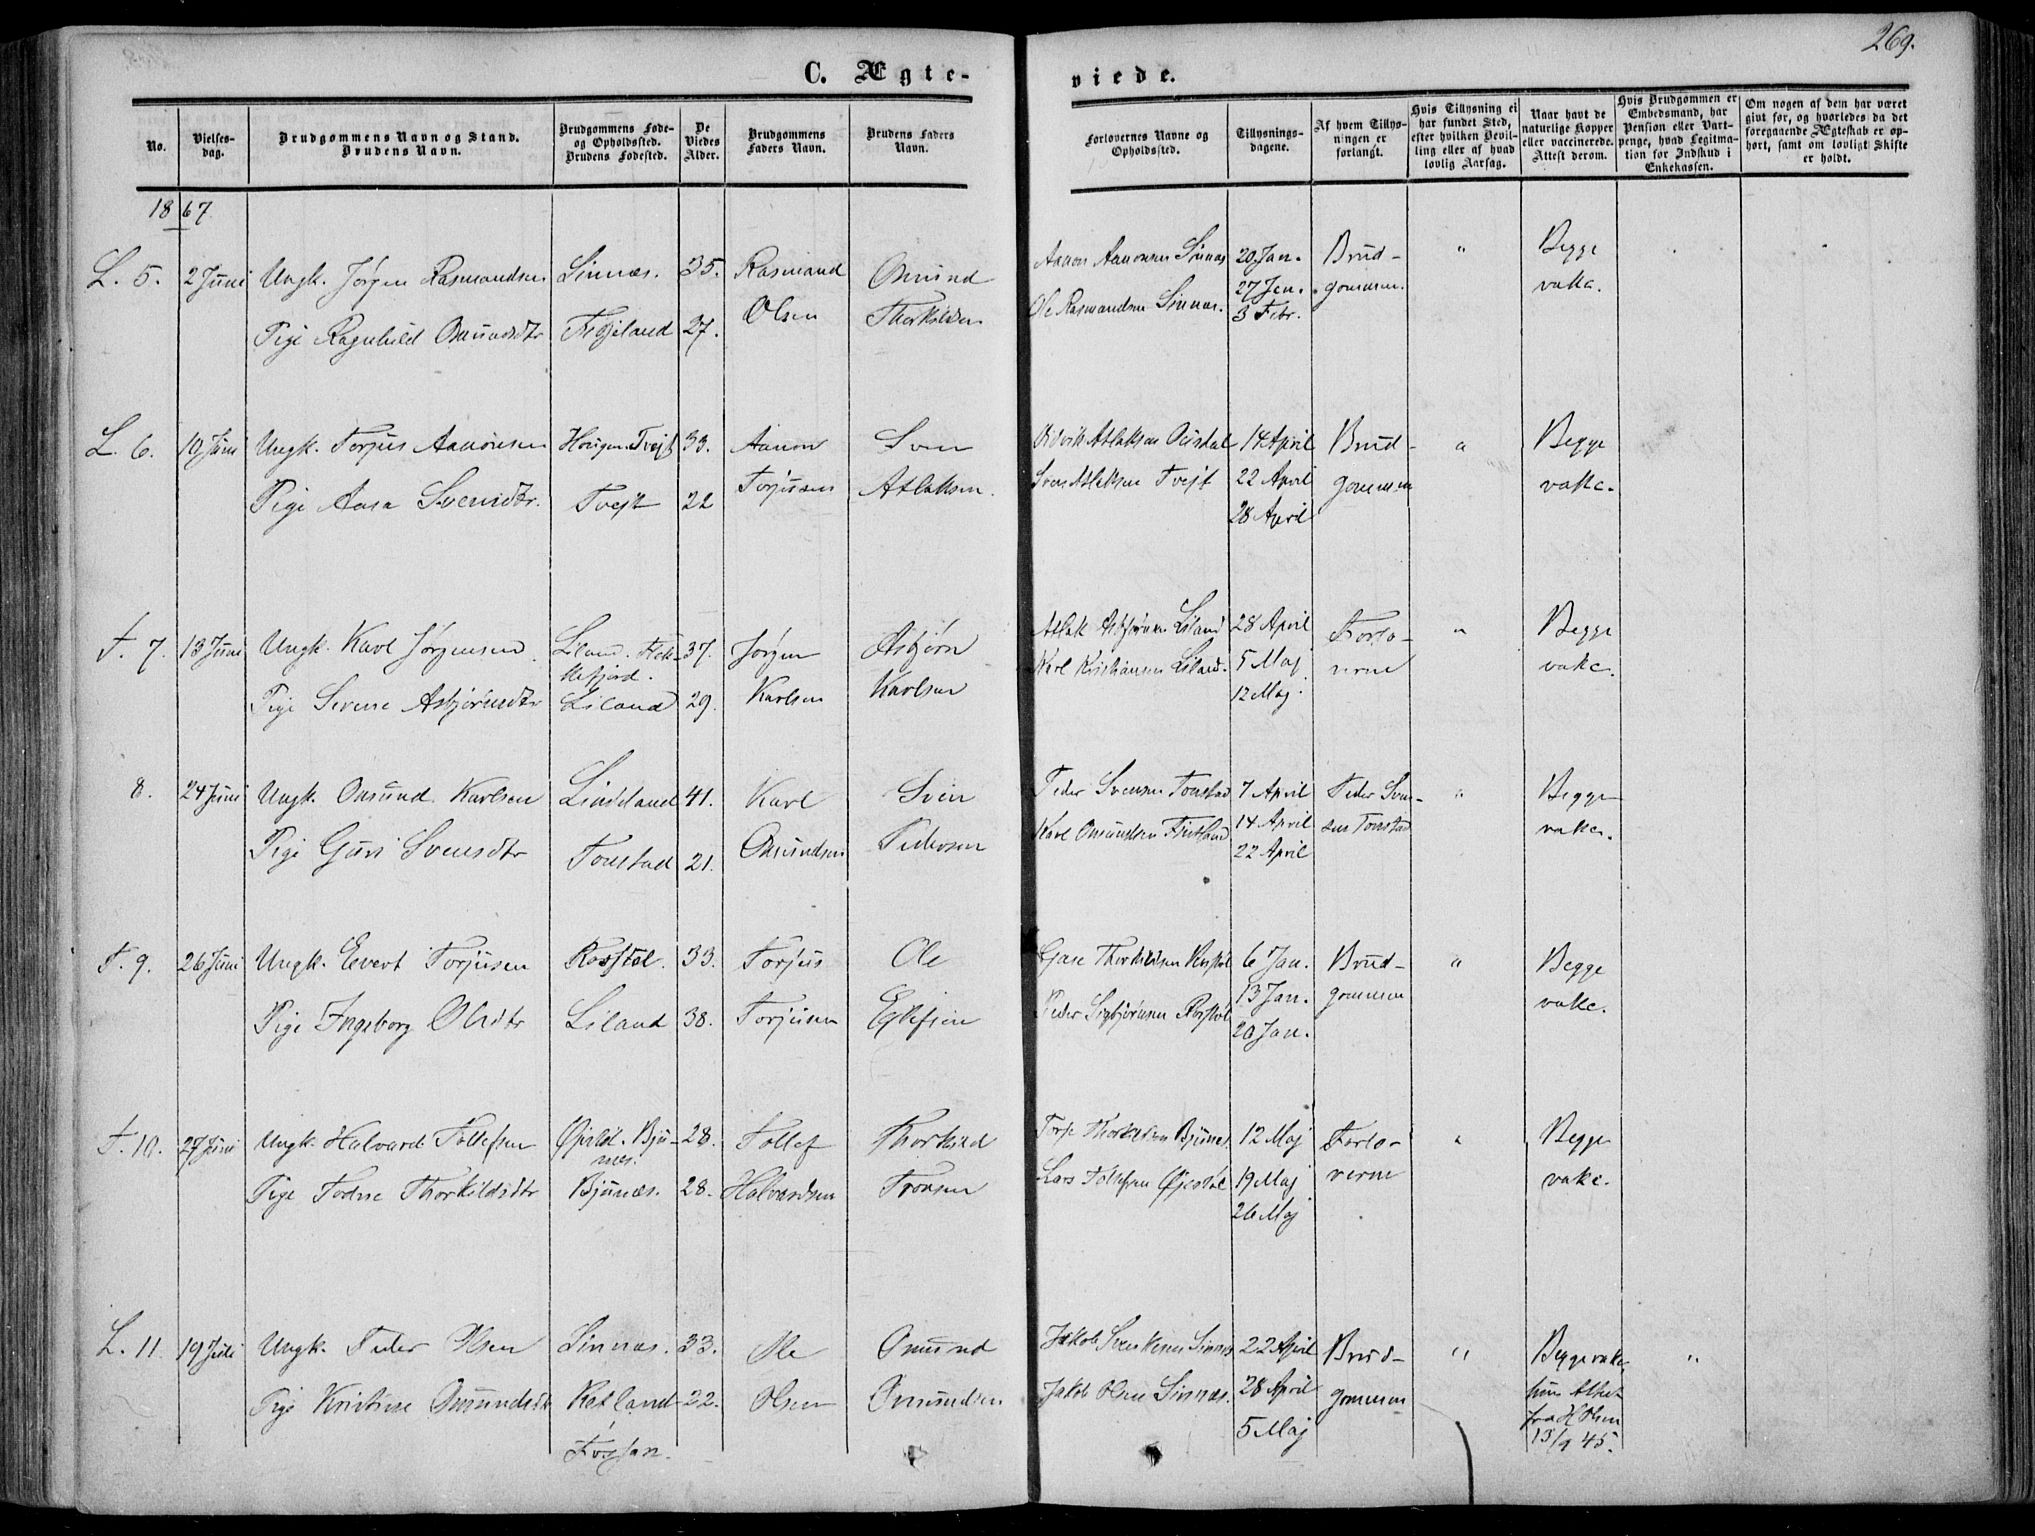 269.
C. Ægte-
viede.
No.
Vielses-
dag.
Brudgommens Navn og Stand.
Brudens Navn.
Brudgommens Føde-
og Opholdssted.
Brudens Fødested.
De
Viedes
Alder.
Brudgommens
Faders Navn.
Brudens Faders
Navn.
Forlovernes Navne og
Opholdssted.
Tillysnings-
dagene.
Af hvem Tillys-
ningen er
forlangt.
Hvis Tillysning ei
har fundet Sted,
efter hvilken Bevil-
ling eller af hvad
lovlig Aarsag.
Naar havt de
naturlige Kopper
eller vaccinerede.
Attest derom.
Hvis Brudgommen er
Embedsmand, har
Pension eller Vart-
penge, hvad Legitma-
tion for Indskud i
Enkekassen.
Om nogen af dem har været
givt før, og hvorledes da det
foregaaende Ægteskab er op-
hørt, samt om lovligt Skifte
er holdt.
1867
L. 5. 2 Juni Ungk. Jørgen Rasmundsen Sinnæs. 35. Rasmund Omund Aanon Aanonsen Sinnæs 20 Jan. Brud- " Begge
Pige Ragnhild Omundsdtr 27. Olsen Thorkildsen Ole Rasmundsen Sinnæs. 27 Jan. gommen. vakc.
3 Febr.
L. 6. 10 Juni Ungk. Torjus Aanonsen Hougen. Tvejt 33. Aanon Sven Atlaksen 14 April Brud- " Begge
Pige Aasa Svensdtr. Tvejt 22 Torjusen Atlaksen. Sven Atlaksen Tvejt 22 April gommen vakc.
28 April
F. 7. 13 Juni Ungk. Karl Jørgensen Liland. Flek- 37. Jørgen Asbjørn Atlak Asbjørnsen Liland 28 April Forlo- " Begge
kefjord.
Pige Serene Asbjørnsdtr Liland 29. Karlsen Karlsen Karl Kristiansen Liland. 5 Maj verne vakc.
12 Maj.
8. 24 Juni Ungk. Omund Karlsen Lindeland 41. Karl Sven Peder Svensen Tonstad 7 April Peder Sven- " Begge
Pige Guri Svensdtr Tonstad 21. Omundsen Pedersen Karl Omundsen 14 April sen Tonstad vakc.
22 April
F. 9. 26 Juni Ungk. Evert Torjusen 33. Torjus Ole Thorkildsen 6 Jan. Brud- " Begge
Pige Ingeborg Olsdtr Liland 38. Torjusen Peder Sigbjørnsen 13 Jan. gommen vakc.
20 Jan.
F. 10. 27 Juni Ungk. Halvard Tollefsen Øjestøl. Bju- 28. Tollef Thorkild Thorkildsen Bjunes 12 Maj Forlo- " Begge
nes.
Pige Thorkildsdtr Bjunes. 28. Halvardsen Tronsen Lars Tollefsen Øjestøl 19 Maj verne vakc.
26 Maj
L. 11. 19 Juli Ungk. Peder Olsen Sinnæs. 33. Ole Omund Jakob Sinnæs 22 April Brud- " Begge vakc. "
Pige Kristine Omundsdtr 22. Olsen Omundsen Jakob Olsen Sinnæs. 28 April gommen Attest
fra H Olsen
5 Maj 13/9 45.